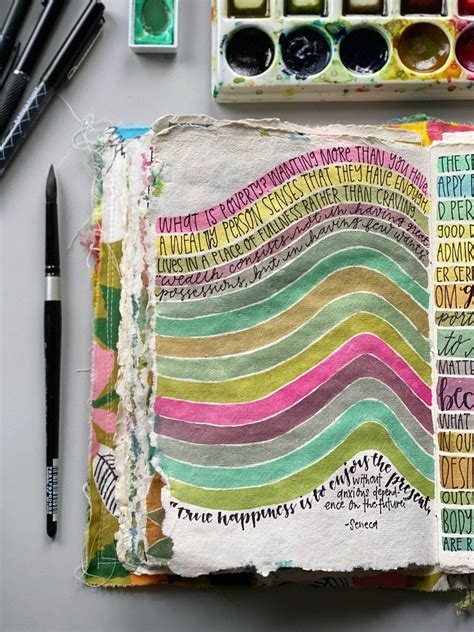 WHAT IS POVERTY? WANTING MORE THAN YOU HAVE.
A WEALTHY PERSON SENSES THAT THEY HAVE ENOUGH,
LIVES IN A PLACE OF FULLNESS RATHER THAN CRAVING.
"wealth consists not in having great
possessions, but in having few wants."
"True happiness is to enjoy the present,
without
anxious depend-
ence on the future."
-Seneca
THE
APPY,
D PER
GOOD
ADMI
ER SER
OM,
port
to
MATTE
bec
WHAT
IN OU
DESI
OUTS
BODY
ARE